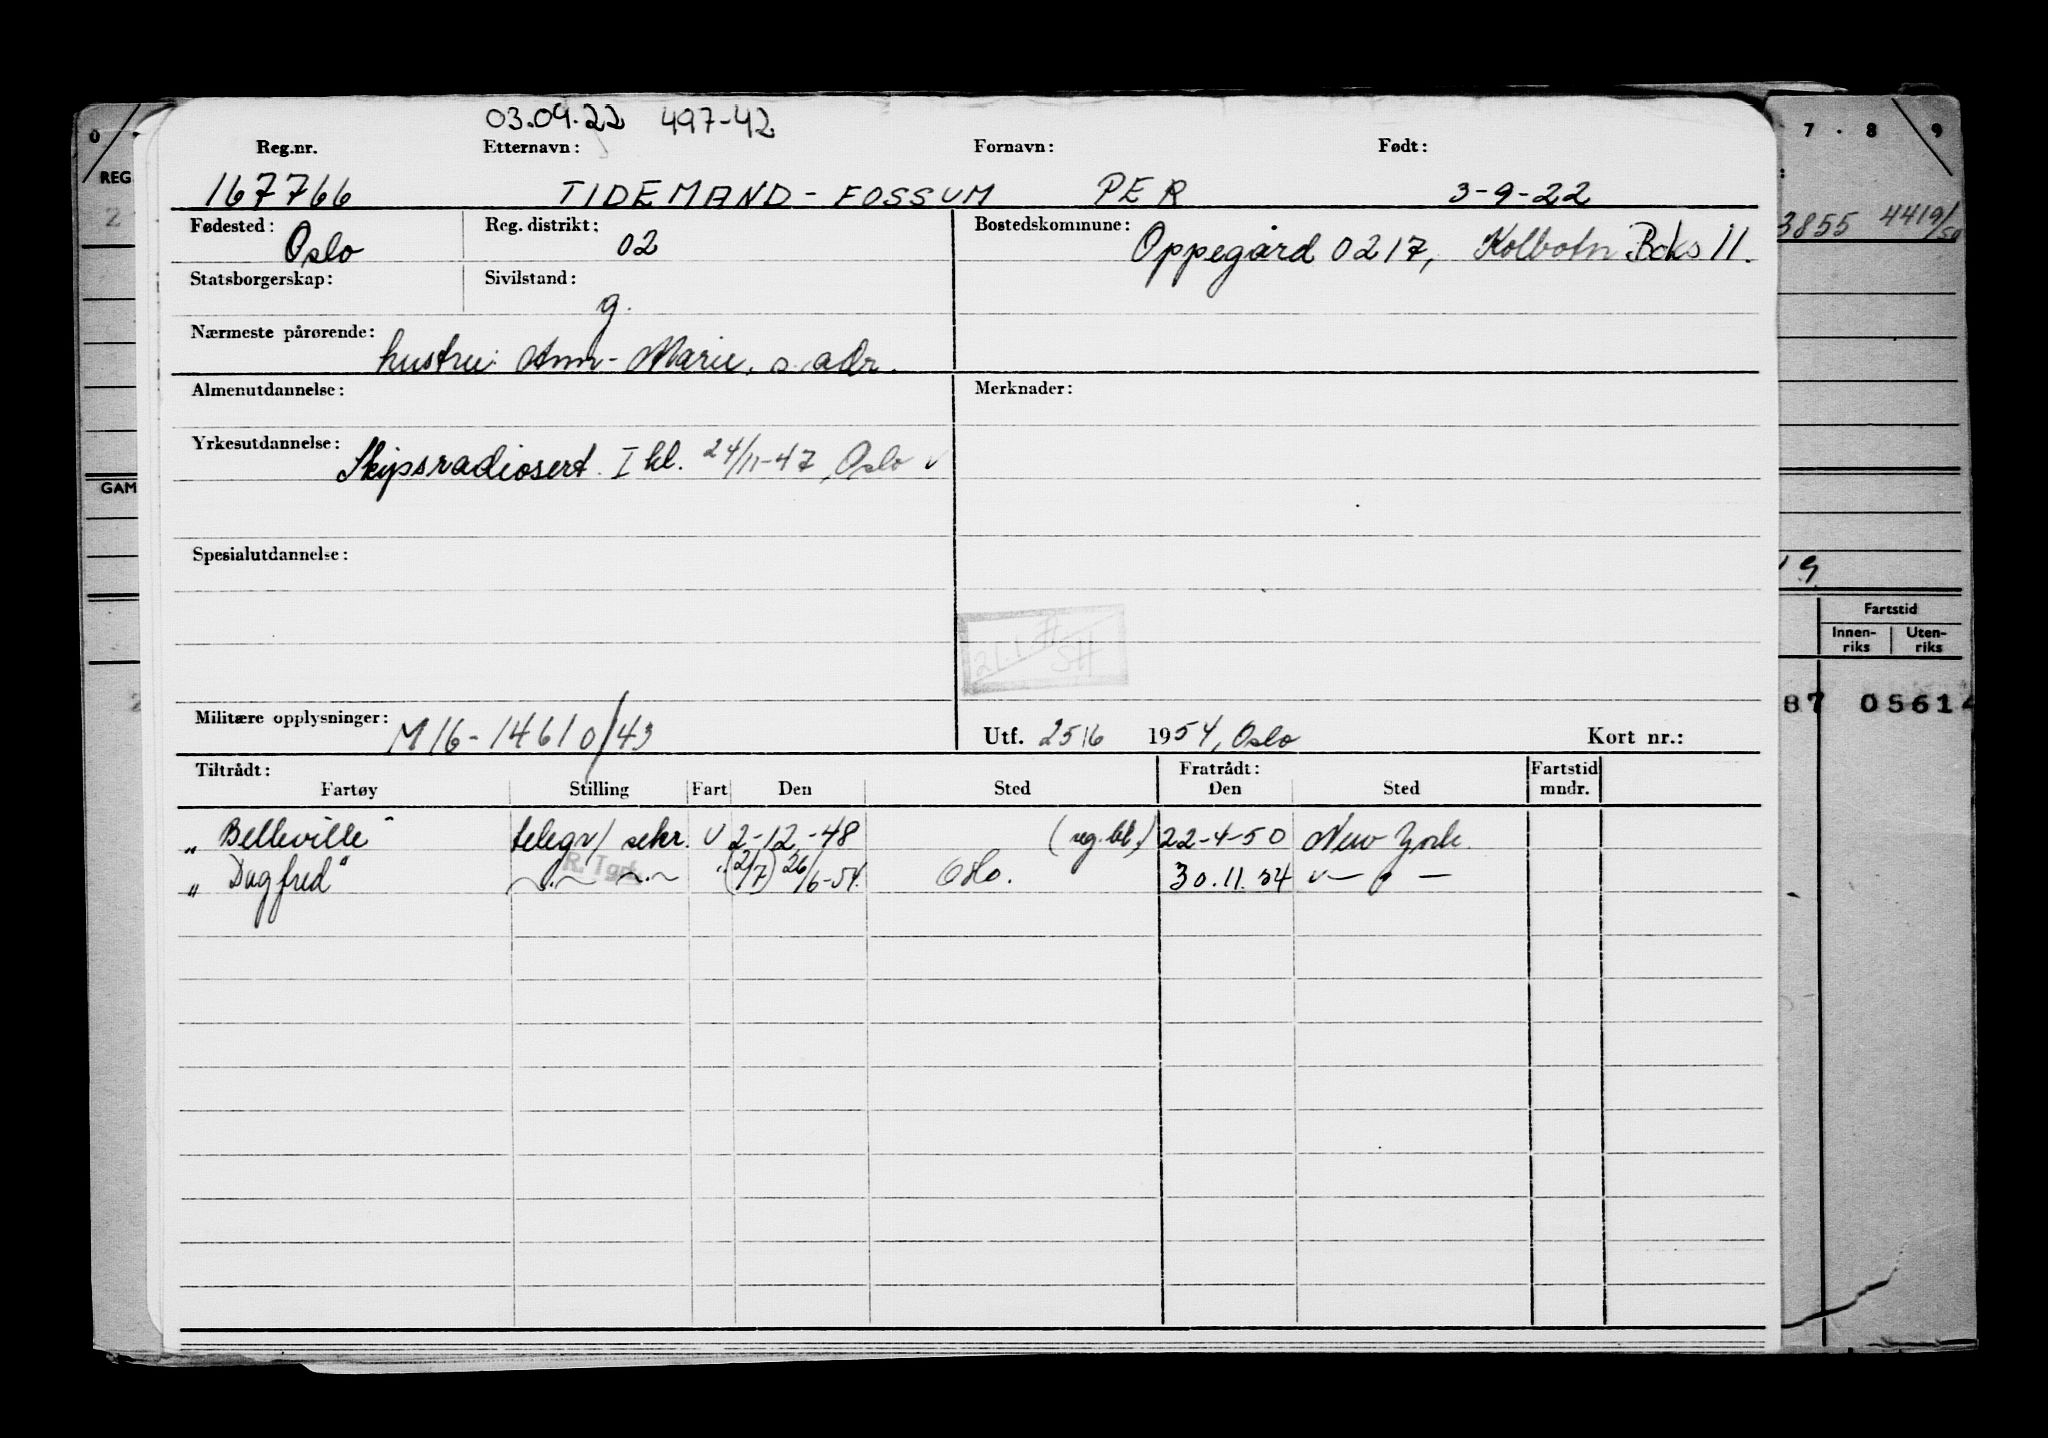 03.09.22 497-42
Reg.nr. Etternavn: Fornavn: Født:
167766 TIDEMAND-FOSSUM PER 3-9-22
Fødested: Oslo Reg. distrikt: 02 Bostedskommune: Oppegård 0217, Kolbotn Boks 11.
Statsborgerskap: Sivilstand: g.
Nærmeste pårørende: hustru: Ann-Marie, s. adr.
Almenutdannelse: Merknader:
Yrkesutdannelse: Skipsradiosert. I kl. 24/11-47, Oslo
Spesialutdannelse:
Militære opplysninger: M 16-14610/43 Utf. 25/6 1954, Oslo Kort nr.:
Tiltrådt: Fratrådt: Fartstid
Fartøy Stilling Fart Den Sted Den Sted mndr.
"Belleville" telegr/sekr. v 2-12-48 (reg.bl.) 22-4-50 New York
"Dagfred" R.Tgr. " (2/7) 26/6-54. Oslo. 30.11.54 — " —
0
REG.
2
GAM
7 . 8 9
3855 4419/50
19
Fartstid
Innen-riks Uten-riks
87 05614